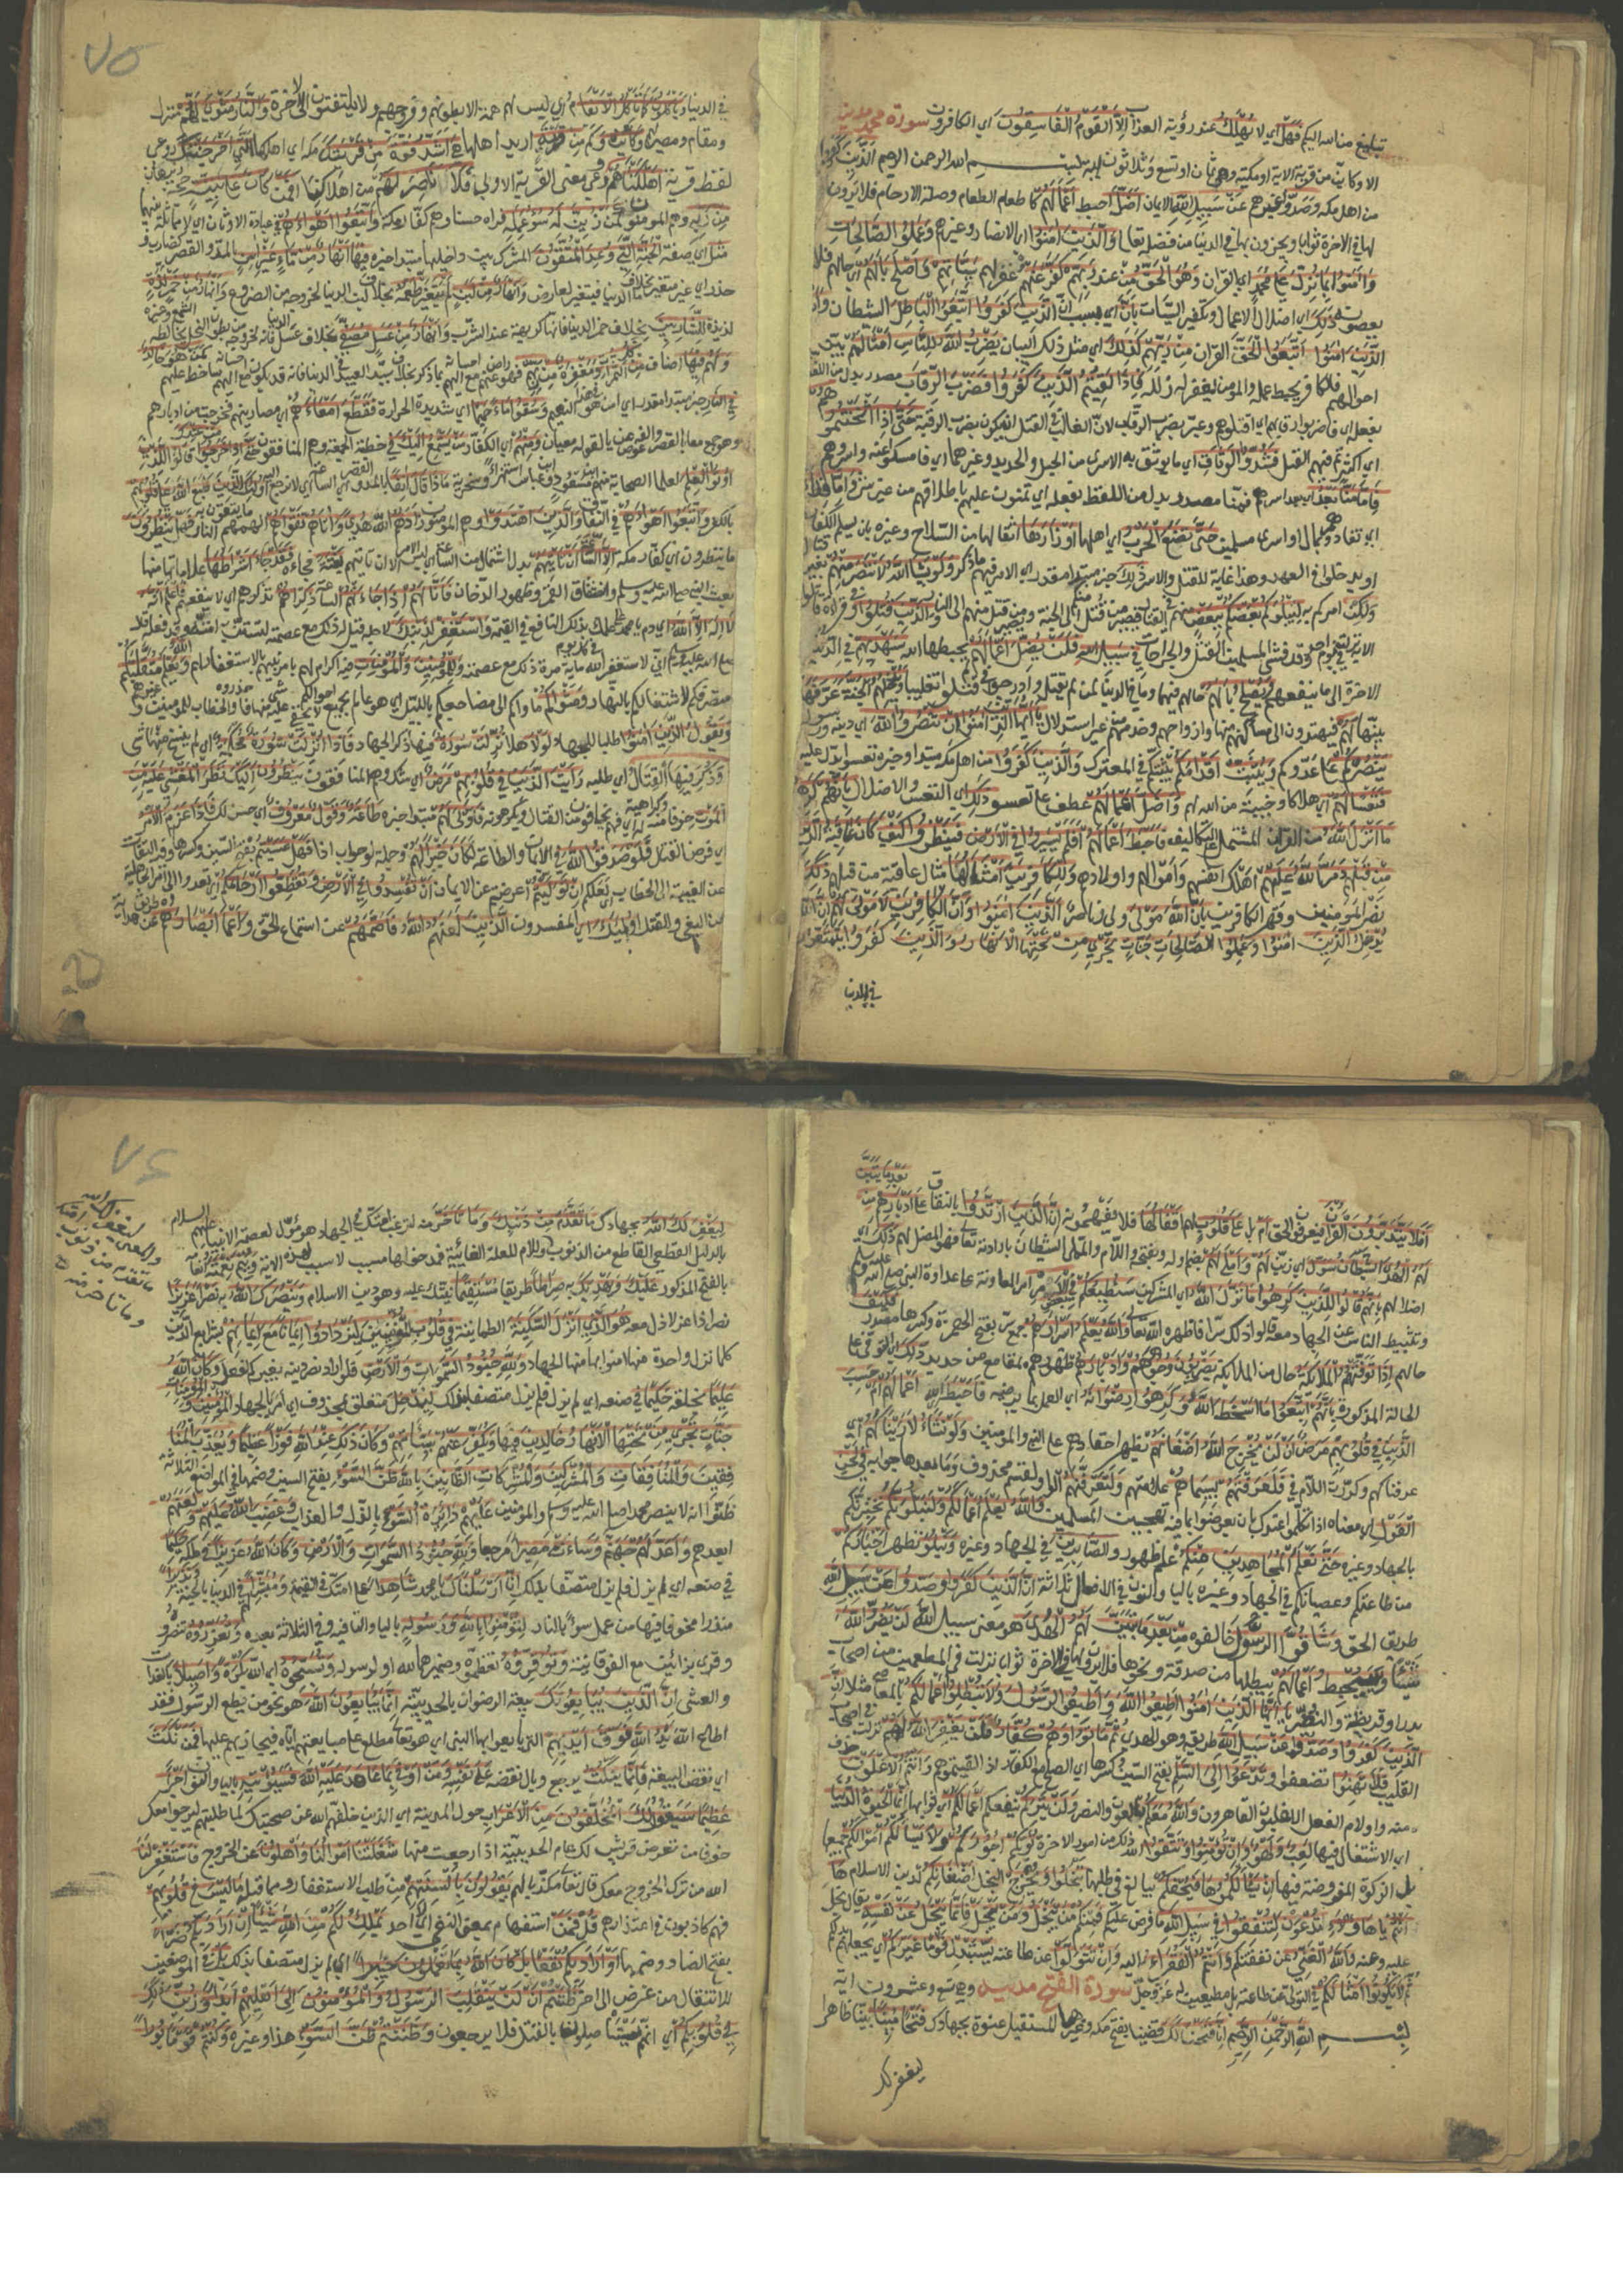 تبليغ من الله اليكم فهل اي لا يهلك عند رؤية العذاب الا القوم الفاسقون اي الكافرون سورة محمد مدنية
الا وكاين من قرية الاية او مكية وهي ثمان او تسع وثلاثون اية بسم الله الرحمن الرحيم الذين كفروا
من اهل مكة وصدوا غيرهم عن سبيل الله الايمان اضل احبط اعمالهم كاطعام الطعام وصلة الارحام فلا يرون
لها في الاخرة ثوابا ويجزون بها في الدنيا من فضله تعالى والذين امنوا اي الانصار وغيرهم وعملوا الصالحات
وامنوا بما نزل على محمد اي القران وهو الحق من عند ربهم كفر عنهم غفر لهم سيئاتهم واصلح بالهم اي حالهم فلا
يعصونه ذلك اي اضلال الاعمال وتكفير السيئات بان اي بسبب ان الذين كفروا اتبعوا الباطل الشيطان وان
الذين امنوا اتبعوا الحق القران من ربهم كذلك اي مثل ذلك البيان يضرب الله للناس امثالهم يبين
احوالهم فالكافر يحبط عمله والمومن يغفر له زلله فاذا لقيتم الذين كفروا فضرب الرقاب مصدر بدل من اللفظ
بفعله اي فاضربوا رقابهم اي اقتلوهم وعبر بضرب الرقاب لان الغالب في القتل ان يكون بضرب الرقبة حتى اذا اثخنتموهم
اي اكثرتم فيهم القتل فشدوا الوثاق اي ما يوثق به الاسرى من الحبل والحديد وغيرهما اي فامسكوا عنه واسروهم
فاما منا بعد اي بعد اسرهم فمنا مصدر بدل من اللفظ بفعله اي تمنون عليهم باطلاقهم من غير شيء واما فداء
اي تفادوهم بمال او اسرى مسلمين حتى تضع الحرب اي اهلها اوزارها اثقالها من السلاح وغيره بان يسلم الكفار
او يدخلوا في العهد وهذا غاية للقتل والاسر ذلك خبر مبتدا مقدر اي الامر فيهم ما ذكر ولو يشا الله لانتصر منهم بغير قتال
ولكن امركم به ليبلو بعضكم ببعض منهم في القتال فيصير من قتل منكم الى الجنة ومن قتل منهم الى النار والذين قتلوا وفي قراءة قاتلوا
الاية نزلت يوم احد وقد فشى في المسلمين القتل والجراحات في سبيل الله فلن يضل اعمالهم يحبطها الله سيهديهم في الدنيا
الاخرة الى ما ينفعهم ويصلح بالهم حالهم فيهما وما في الدنيا لمن لم يقتل وادرجوا في قتلوا تغليبا ويدخلهم الجنة عرفها
بينها لهم فيهتدون الى مساكنهم منها وازواجهم وخدمهم من غير استدلال يا ايها الذين امنوا ان تنصروا الله اي دينه ورسوله
ينصركم على عدوكم ويثبت اقدامكم يثبتكم في المعترك والذين كفروا من اهل مكة مبتدا وخبره تعسوا يدل عليه
فتعسا لهم اي هلاكا وخيبة من الله لهم واضل اعمالهم عطف على تعسوا ذلك اي التعس والاضلال بانهم كرهوا
ما انزل الله من القران المشتمل على التكاليف فاحبط اعمالهم افلم يسيروا في الارض فينظروا كيف كان عاقبة الذين
من قبلهم دمر الله عليهم اهلك انفسهم واموالهم واولادهم وللكافرين امثالها امثال عاقبة من قبلهم ذلك
نصر المؤمنين وقهر الكافرين بان الله مولى ولي وناصر الذين امنوا وان الكافرين لا مولى لهم ان الله
يدخل الذين امنوا وعملوا الصالحات جنات تجري من تحتها الانهار والذين كفروا يتمتعون
في الدنيا
٧٥
في الدنيا وياكلون كما تاكل الانعام اي ليس لهم همة الا بطونهم وفروجهم ولا يلتفتون الى الاخرة والنار مثوى لهم منزل
ومقام ومصير وكاين وكم من قرية اريد اهلها هي اشد قوة من قريتك مكة اي اهلها التي اخرجتك روعي
لفظ قرية اهلكناهم روعي معنى القرية الاولى فلا ناصر لهم من اهلاكنا افمن كان على بينة حجة وبرهان
من ربه وهم المومنون كمن زين له سوء عمله فراه حسنا وهم كفار مكة واتبعوا اهواءهم في عبادة الاوثان اي لا مماثلة بينهما
مثل اي صفة الجنة التي وعد المتقون المشتركة بين داخليها مبتدا خبره فيها انهار من ماء غير اسن بالمد والقصر كضارب و
حذر اي غير متغير بخلاف ماء الدنيا فيتغير لعارض وانهار من لبن لم يتغير طعمه بخلاف لبن الدنيا لخروجه من الضروع وانهار من خمر لذة
لذيذة للشاربين بخلاف خمر الدنيا فانها كريهة عند الشرب وانهار من عسل مصفى بخلاف عسل الدنيا فانه لخروجه من بطون النحل يخالطه الشمع وغيره
ولهم فيها اصناف من كل الثمرات ومغفرة من ربهم فهو راض عنهم مع احسانه اليهم بما ذكر بخلاف سيد العبيد في الدنيا فانه قد يكون مع احسانه اليهم ساخطا عليهم كمن هو خالد
في النار خبر مبتدا مقدر اي امن هو في هذا النعيم وسقوا ماء حميما اي شديد الحرارة فقطع امعاءهم اي مصارينهم فخرجت من ادبارهم
وهو جمع معا بالقصر والفه عوض عن ياء لقوله معيان ومنهم اي الكفار من يستمع اليك في خطبة الجمعة وهم المنافقون حتى اذا خرجوا من عندك قالوا للذين
اوتوا العلم لعلماء الصحابة منهم ابن مسعود وابن عباس استهزاء وسخرية ماذا قال انفا بالمد والقصر اي الساعة اي لا نرجع اليه اولئك الذين طبع الله على قلوبهم
بالكفر واتبعوا اهواءهم في النفاق والذين اهتدوا وهم المومنون زادهم الله هدى واتاهم تقواهم الهمهم ما يتقون به النار فهل ينظرون
ما ينتظرون اي كفار مكة الا الساعة ان تاتيهم بدل اشتمال من الساعة اي ليس الامر الا ان تاتيهم بغتة فجاءة فقد جاء اشراطها علاماتها منها
بعث النبي صلى الله عليه وسلم وانشقاق القمر وظهور الدخان فانى لهم اذا جاءتهم الساعة ذكراهم تذكرهم اي لا ينفعهم فاعلم انه
لا اله الا الله اي دم يا محمد على علمك بذلك النافع في القيمة واستغفر لذنبك لاجله قيل له ذلك مع عصمته لتستن به امته وقد فعله قال
صلى الله عليه وسلم اني لاستغفر الله في كل يوم ماية مرة ذكر مع عصمته وللمؤمنين والمؤمنات فيه اكرام لهم بامر نبيهم بالاستغفار لهم والله يعلم متقلبكم
متصرفكم لاشتغالكم بالنهار ومثواكم ماواكم الى مضاجعكم بالليل اي هو عالم بجميع احوالكم لا يخفى عليه شيء منها فاحذروه والخطاب للمومنين وغيرهم
ويقول الذين امنوا طلبا للجهاد لولا هلا نزلت سورة فيها ذكر الجهاد فاذا انزلت سورة محكمة اي لم ينسخ منها شيء
وذكر فيها القتال اي طلبه رايت الذين في قلوبهم مرض اي شك وهم المنافقون ينظرون اليك نظر المغشي عليه من
الموت خوفا منه وكراهية له اي فهم يخافون من القتال ويكرهونه فاولى لهم مبتدا خبره طاعة وقول معروف اي حسن لك فاذا عزم الامر
اي فرض القتال فلو صدقوا الله في الايمان والطاعة لكان خيرا لهم وجملة لو جواب اذا فهل عسيتم بفتح السين وكسرها وفيه التفات
عن الغيبة الى الخطاب اي لعلكم ان توليتم اعرضتم عن الايمان ان تفسدوا في الارض وتقطعوا ارحامكم اي تعودوا الى امر الجاهلية
من البغي والقتل اولئك اي المفسدون الذين لعنهم الله فاصمهم عن استماع الحق واعمى ابصارهم عن طريق الهداية
افلا يتدبرون القران فيعرفون الحق ام بل على قلوب لهم اقفالها فلا يفهمونه ان الذين ارتدوا بالنفاق على ادبارهم من بعد ما تبين
لهم الهدى الشيطان سول اي زين لهم واملي لهم بضم اوله وبفتحه واللام والمملي الشيطان بارادته تعالى فهو المضل لهم ذلك اي
اضلالهم بانهم قالوا للذين كرهوا ما نزل الله اي المشركين سنطيعكم في بعض الامر امر المعاونة على عداوة النبي صلى الله عليه وسلم
وتثبيط الناس عن الجهاد معه قالوا ذلك سرا فاظهره الله تعالى والله يعلم اسرارهم جمع سر بفتح الهمزة وكسرها مصدر فكيف
حالهم اذا توفتهم الملائكة حال من الملائكة يضربون وجوههم وادبارهم ظهورهم بمقامع من حديد ذلك اي التوفي على
الحالة المذكورة بانهم اتبعوا ما اسخط الله وكرهوا رضوانه اي العمل بما يرضيه فاحبط الله اعمالهم ام حسب
الذين في قلوبهم مرض ان لن يخرج الله اضغانهم يظهر احقادهم على النبي والمومنين ولو نشاء لاريناكهم اي
عرفناكهم وكررت اللام في فلعرفتهم بسيماهم علامتهم ولتعرفنهم الواو لقسم محذوف وما بعدها جوابه في لحن
القول اي معناه اذا تكلموا عندك بان يعرضوا بما فيه تهجين المسلمين والله يعلم اعمالكم ولنبلونكم نختبرنكم
بالجهاد وغيره حتى نعلم المجاهدين منكم علم ظهور والصابرين في الجهاد وغيره ونبلو نظهر اخباركم
من طاعتكم وعصيانكم في الجهاد وغيره باليا والنون في الافعال الثلاثة ان الذين كفروا وصدوا عن سبيل الله
طريق الحق وشاقوا الرسول خالفوه من بعد ما تبين لهم الهدى هو معنى سبيل الله لن يضروا الله
شيئا وسيحبط اعمالهم يبطلها من صدقة ونحوها فلا يرون لها في الاخرة ثوابا نزلت في المطعمين من اصحاب
بدر او قريظة والنضير يا ايها الذين امنوا اطيعوا الله واطيعوا الرسول ولا تبطلوا اعمالكم بالمعاصي مثلا ان
الذين كفروا وصدوا عن سبيل الله طريقه وهو الهدى ثم ماتوا وهم كفار فلن يغفر الله لهم نزلت في اصحاب
القليب فلا تهنوا تضعفوا وتدعوا الى السلم بفتح السين وكسرها اي الصلح مع الكفار اذا لقيتموهم وانتم الاعلون حذف
منه واو لام الفعل الاغلبون القاهرون والله معكم بالعون والنصر ولن يتركم ينقصكم اعمالكم اي ثوابها انما الحيوة الدنيا
اي الاشتغال فيها لعب ولهو وان تؤمنوا وتتقوا الله ذلك من امور الاخرة يؤتكم اجوركم ولا يسالكم اموالكم جميعها
بل الزكوة المفروضة فيها ان يسالكموها فيحفكم يبالغ في طلبها تبخلوا ويخرج البخل اضغانكم لدين الاسلام ها
انتم يا هؤلاء تدعون لتنفقوا في سبيل الله ما فرض عليكم فمنكم من يبخل ومن يبخل فانما يبخل عن نفسه يقال بخل
عليه وعنه والله الغني عن نفقتكم وانتم الفقراء اليه وان تتولوا عن طاعته يستبدل قوما غيركم اي يجعلهم بدلكم
ثم لا يكونوا امثالكم في التولي عن طاعته بل مطيعين له عز وجل سورة الفتح مدنية وهي تسع وعشرون اية
بسم الله الرحمن الرحيم انا فتحنا لك قضينا بفتح مكة وغيرها المستقبل عنوة بجهادك فتحا مبينا بينا ظاهرا
ليغفر لك
٧٤
ليغفر لك الله بجهادك ما تقدم من ذنبك وما تاخر منه لترغب امتك في الجهاد هو مؤول لعصمة الانبياء عليهم السلام
بالدليل القطعي القاطع من الذنوب واللام للعلة الغائية فمدخولها مسبب لا سبب ويتم بالفتح المذكور نعمته انعامه
عليك ويهديك به صراطا طريقا مستقيما يثبتك عليه وهو دين الاسلام وينصرك الله به نصرا عزيزا
نصرا ذا عز لا ذل معه هو الذي انزل السكينة الطمانينة في قلوب المؤمنين ليزدادوا ايمانا مع ايمانهم بشرايع الدين
كلما نزل واحدة منها امنوا بها منها الجهاد ولله جنود السموات والارض فلو اراد نصر دينه بغيركم لفعل وكان الله
عليما بخلقه حكيما في صنعه اي لم يزل متصفا بذلك ليدخل متعلق بمحذوف اي امر بالجهاد المؤمنين والمؤمنات
جنات تجري من تحتها الانهار خالدين فيها ويكفر عنهم سيئاتهم وكان ذلك عند الله فوزا عظيما ويعذب المنا
فقين والمنافقات والمشركين والمشركات الظانين بالله ظن السوء بفتح السين وضمها في المواضع الثلاثة
ظنوا انه لا ينصر محمدا صلى الله عليه وسلم والمومنين عليهم دائرة السوء بالذل والعذاب وغضب الله عليهم ولعنهم
ابعدهم واعد لهم جهنم وساءت مصيرا مرجعا ولله جنود السموات والارض وكان الله عزيزا في ملكه حكيما
في صنعه اي لم يزل متصفا بذلك انا ارسلناك يا محمد شاهدا على امتك في القيمة ومبشرا لهم في الدنيا بالجنة ونذيرا
منذرا مخوفا فيها من عمل سوءا بالنار لتؤمنوا بالله ورسوله باليا والتا فيه وفي الثلاثة بعده وتعزروه تنصروه
وقرئ بزائين مع الفوقانية وتوقروه تعظموه وضميرهما لله او لرسوله وتسبحوه اي الله بكرة واصيلا بالغداة
والعشي ان الذين يبايعونك بيعة الرضوان بالحديبية انما يبايعون الله هو نحو من يطع الرسول فقد
اطاع الله يد الله فوق ايديهم التي بايعوا بها النبي اي هو تعالى مطلع على مبايعتهم اياه فيجازيهم عليها فمن نكث
اي نقض البيعة فانما ينكث يرجع وبال نقضه على نفسه ومن اوفى بما عاهد عليه الله فسيؤتيه باليا والنون اجرا
عظيما سيقول لك المخلفون من الاعراب حول المدينة اي الذين خلفهم الله عن صحبتك لما طلبتهم ليخرجوا معك
خوفا من تعرض قريش لك عام الحديبية اذا رجعت منها شغلتنا اموالنا واهلونا عن الخروج فاستغفر لنا
الله من ترك الخروج معك قال تعالى مكذبا لهم يقولون بالسنتهم من طلب الاستغفار وما قبله ما ليس في قلوبهم
فهم كاذبون في اعتذارهم قل فمن استفهام بمعنى النفي اي لا احد يملك لكم من الله شيئا ان اراد بكم ضرا
بفتح الضاد وضمها او اراد بكم نفعا بل كان الله بما تعملون خبيرا اي لم يزل متصفا بذلك بل في الموضعين
للانتقال من غرض الى اخر ظننتم ان لن ينقلب الرسول والمؤمنون الى اهليهم ابدا وزين ذلك
في قلوبكم اي انهم يستاصلون بالقتل فلا يرجعون وظننتم ظن السوء هذا وغيره وكنتم قوما بورا
والمعنى ليغفر لك الله
ما تقدم من ذنوب امتك
وما تاخر منه